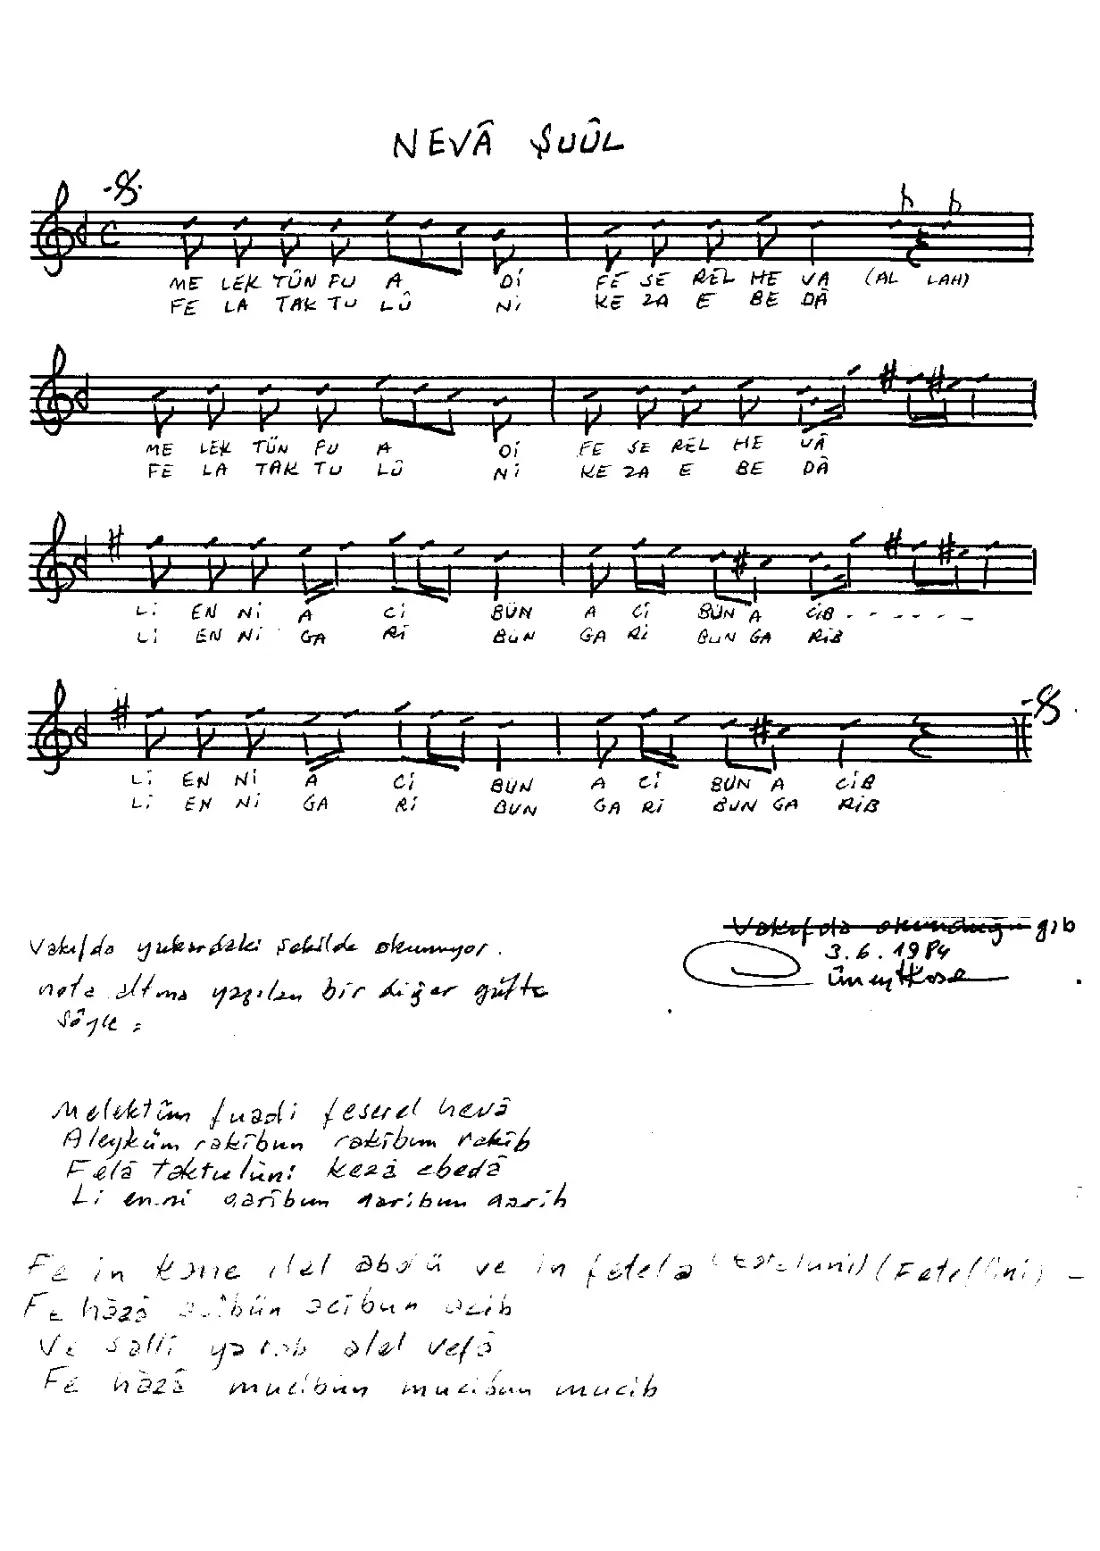 NEVÂ ŞUÛL
ME LEK TÜN FU A Dİ FE SE REL HE VA (AL LAH)
FE LA TAK TU LÛ Nİ KE ZA E BE DÂ
ME LEK TÜN FU A Dİ FE SE REL HE VÂ
FE LA TAK TU LÛ Nİ KE ZA E BE DÂ
Lİ EN Nİ A Cİ BÜN A Cİ BÜN A CİB - - - - - -
Lİ EN Nİ GA Rİ BUN GA Rİ BUN GA RİB
Lİ EN Nİ A Cİ BUN A Cİ BUN A CİB
Lİ EN Nİ GA Rİ BUN GA Rİ BUN GA RİB
Vakıfda okunduğu gib
Vakıfda yukardaki şekilde okunuyor.
3.6.1984
nota altına yazılan bir diğer güfte
şöyle :
Melektüm fuadi feserel hevâ
Aleyküm rakîbun rakîbum rakîb
Felâ taktulûni kezâ ebedâ
Li en.ni garîbun garibun garib
Fe in kane ilel abdü ve in fetela (Fetellini) -
Fe hâzâ acibün acîbun acib
Ve salli ya rab alel vefâ
Fe hâzâ mucîbun mucibun mucib